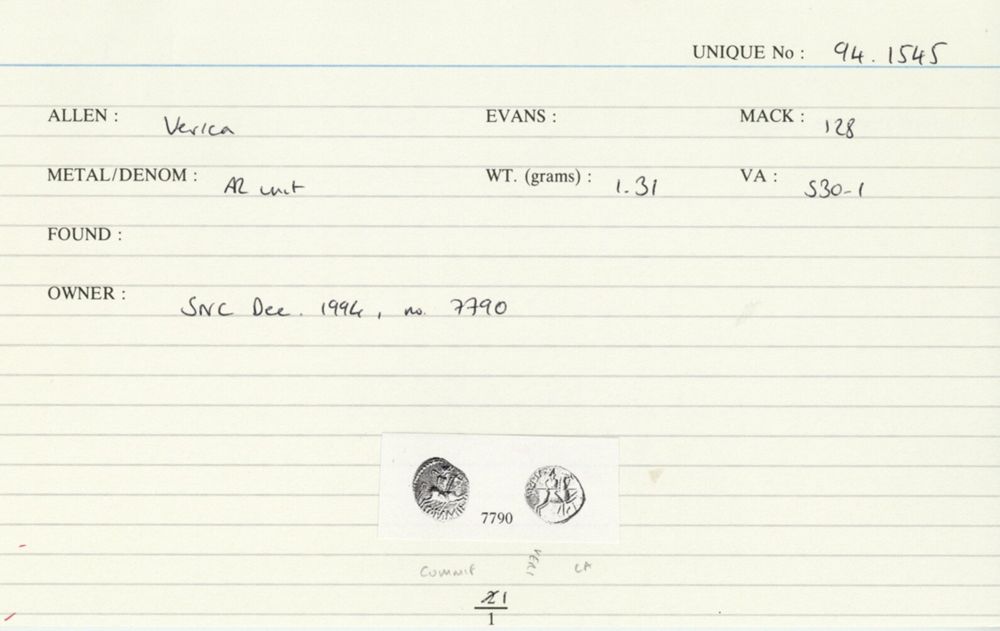 UNIQUE No : 94.1545
ALLEN : Verica EVANS : MACK : 128
METAL/DENOM : AR unit WT. (grams) : 1.31 VA : 530-1
FOUND :
OWNER : SNC Dec. 1994, no. 7790
7790
COMMIF VERI CA
1
1